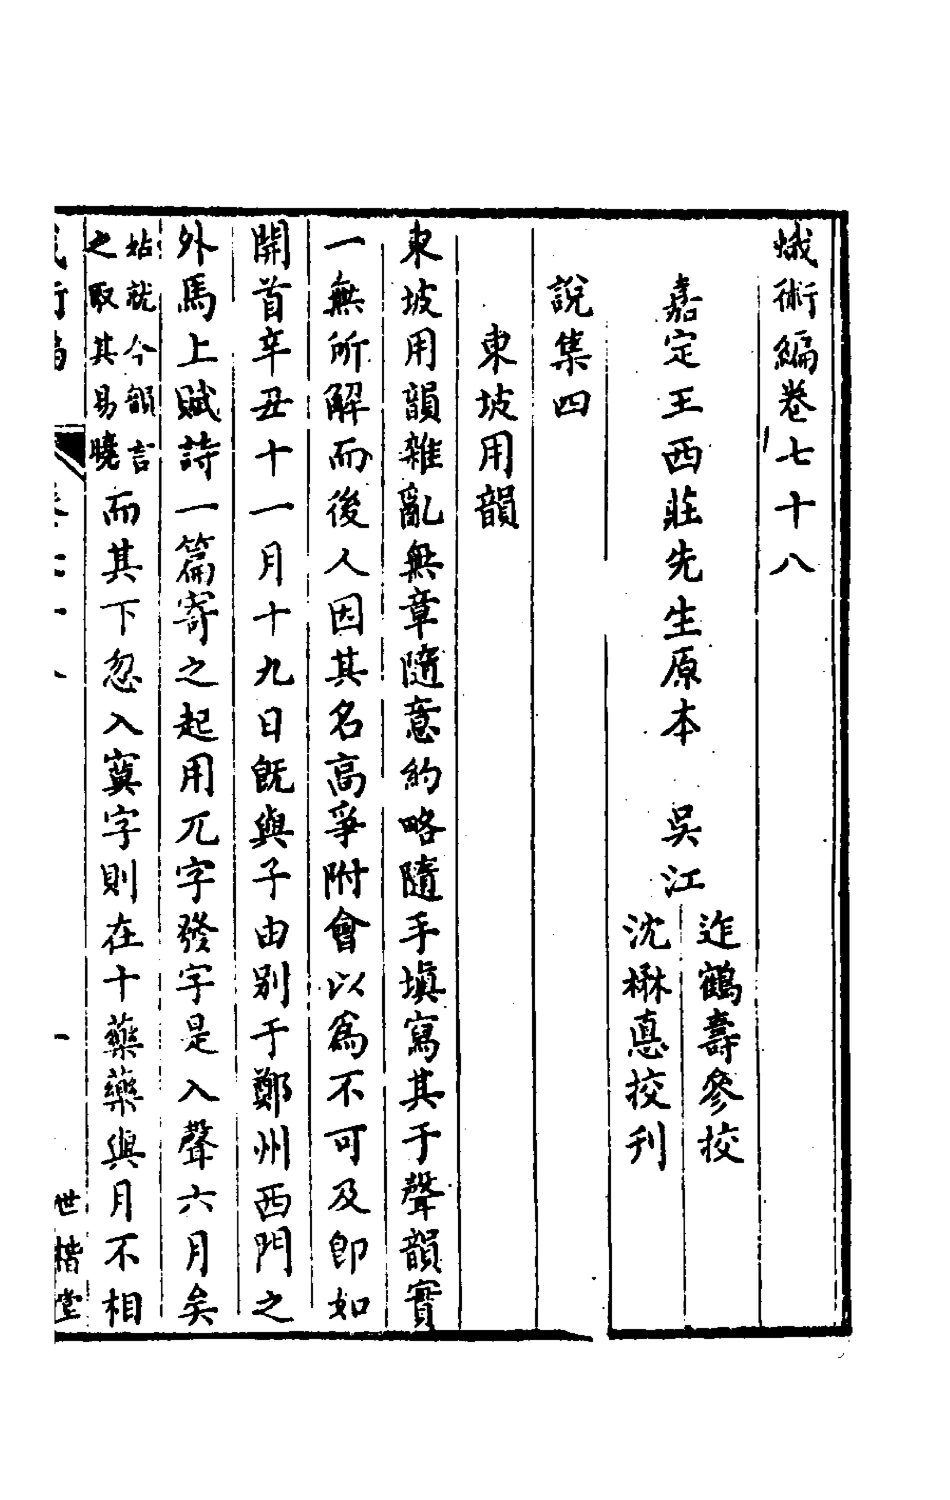 蛾術編卷七十八
嘉定王西莊先生原本　吳江
迮鶴壽參校
沈楙悳挍刊
說集四
東坡用韻
東坡用韻雜亂無章隨意約略隨手塡寫其于聲韻實
一無所解而後人因其名高爭附會以爲不可及卽如
開首辛丑十一月十九日旣與子由別于鄭州西門之
外馬上賦詩一篇寄之起用兀字發字是入聲六月矣
姑就今韻言
之取其易曉
而其下忽入寞字則在十藥藥與月不相
世楷堂